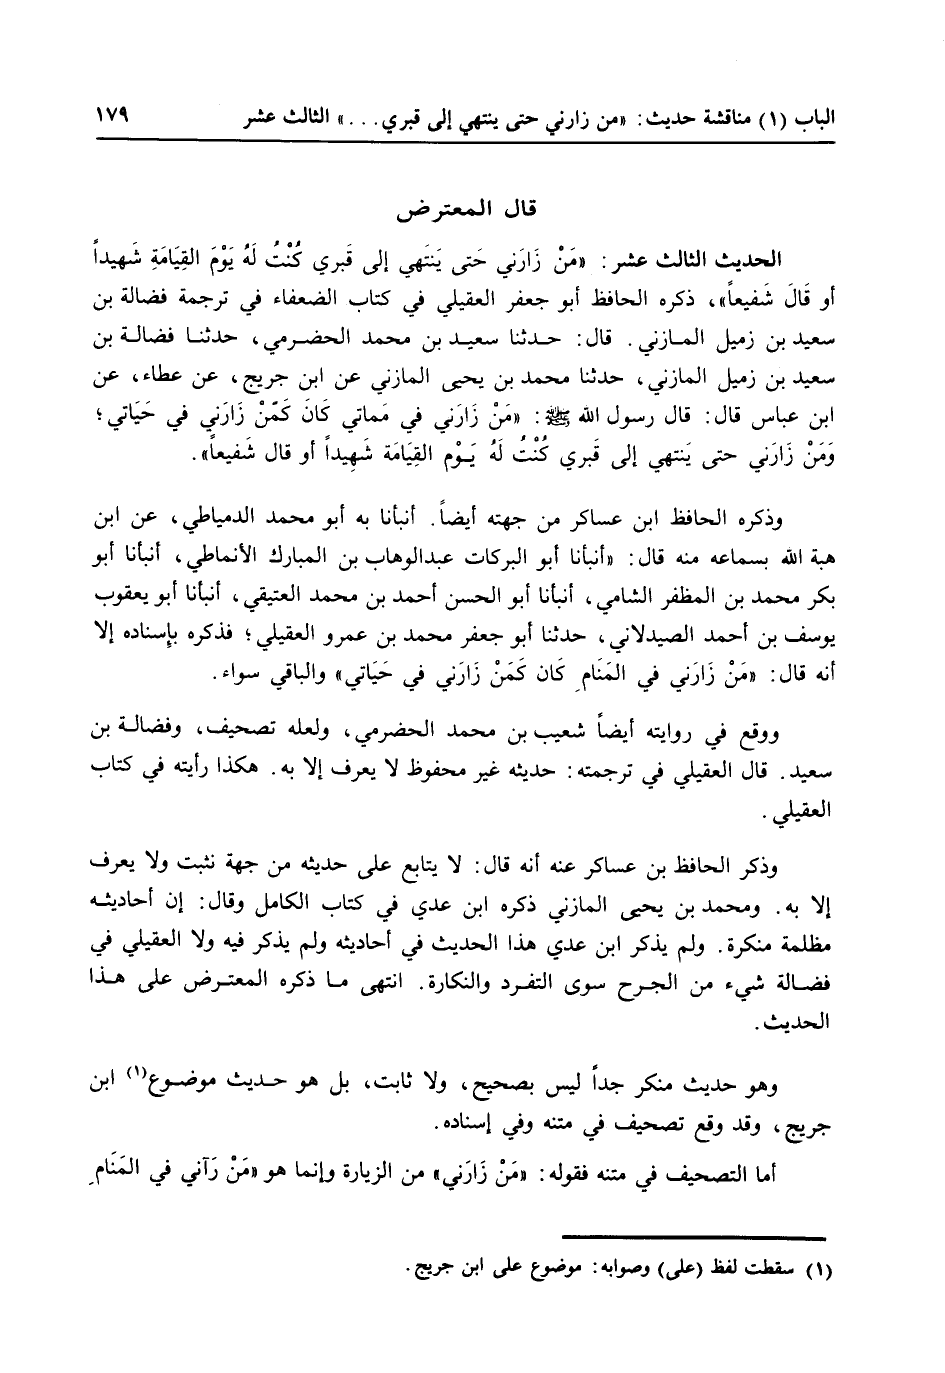 الباب (١) مناقشة حديث: «من زارني حتى ينتهي إلى قبري. . .» الثالث عشر ١٧٩
قال المعترض
الحديث الثالث عشر: «مَنْ زَارَني حَتى يَنتَهي إلى قَبري كُنْتُ لَهُ يَوْمَ القِيَامَةِ شَهيداً
أو قَالَ شَفيعاً»، ذكره الحافظ أبو جعفر العقيلي في كتاب الضعفاء في ترجمة فضالة بن
سعيد بن زميل المازني. قال: حدثنا سعيد بن محمد الحضرمي، حدثنا فضالة بن
سعيد بن زميل المازني، حدثنا محمد بن يحيى المازني عن ابن جريج، عن عطاء، عن
ابن عباس قال: قال رسول الله ﷺ: «مَنْ زَارَني في مَماتي كَانَ كَمَنْ زَارَني في حَيَاتي؛
وَمَنْ زَارَني حتى يَنتهي إلى قَبري كُنْتُ لَهُ يَوْم القِيَامَة شَهِيداً أو قال شَفيعاً».
وذكره الحافظ ابن عساكر من جهته أيضاً. أنبأنا به أبو محمد الدمياطي، عن ابن
هبة الله بسماعه منه قال: «أنبأنا أبو البركات عبدالوهاب بن المبارك الأنماطي، أنبأنا أبو
بكر محمد بن المظفر الشامي، أنبأنا أبو الحسن أحمد بن محمد العتيقي، أنبأنا أبو يعقوب
يوسف بن أحمد الصيدلاني، حدثنا أبو جعفر محمد بن عمرو العقيلي؛ فذكره بإسناده إلا
أنه قال: «مَنْ زَارَني في المَنَامِ كَان كَمَنْ زَارَني في حَيَاتي» والباقي سواء.
ووقع في روايته أيضاً شعيب بن محمد الحضرمي، ولعله تصحيف، وفضالة بن
سعيد. قال العقيلي في ترجمته: حديثه غير محفوظ لا يعرف إلا به. هكذا رأيته في كتاب
العقيلي.
وذكر الحافظ بن عساكر عنه أنه قال: لا يتابع على حديثه من جهة نثبت ولا يعرف
إلا به. ومحمد بن يحيى المازني ذكره ابن عدي في كتاب الكامل وقال: إن أحاديثه
مظلمة منكرة. ولم يذكر ابن عدي هذا الحديث في أحاديثه ولم يذكر فيه ولا العقيلي في
فضالة شيء من الجرح سوى التفرد والنكارة. انتهى ما ذكره المعترض على هذا
الحديث.
وهو حديث منكر جداً ليس بصحيح، ولا ثابت، بل هو حديث موضوع(١) ابن
جريج، وقد وقع تصحيف في متنه وفي إسناده.
أما التصحيف في متنه فقوله: «مَنْ زَارَني» من الزيارة وإنما هو «مَنْ رَآني في المَنَامِ
(١) سقطت لفظ (على) وصوابه: موضوع على ابن جريج.